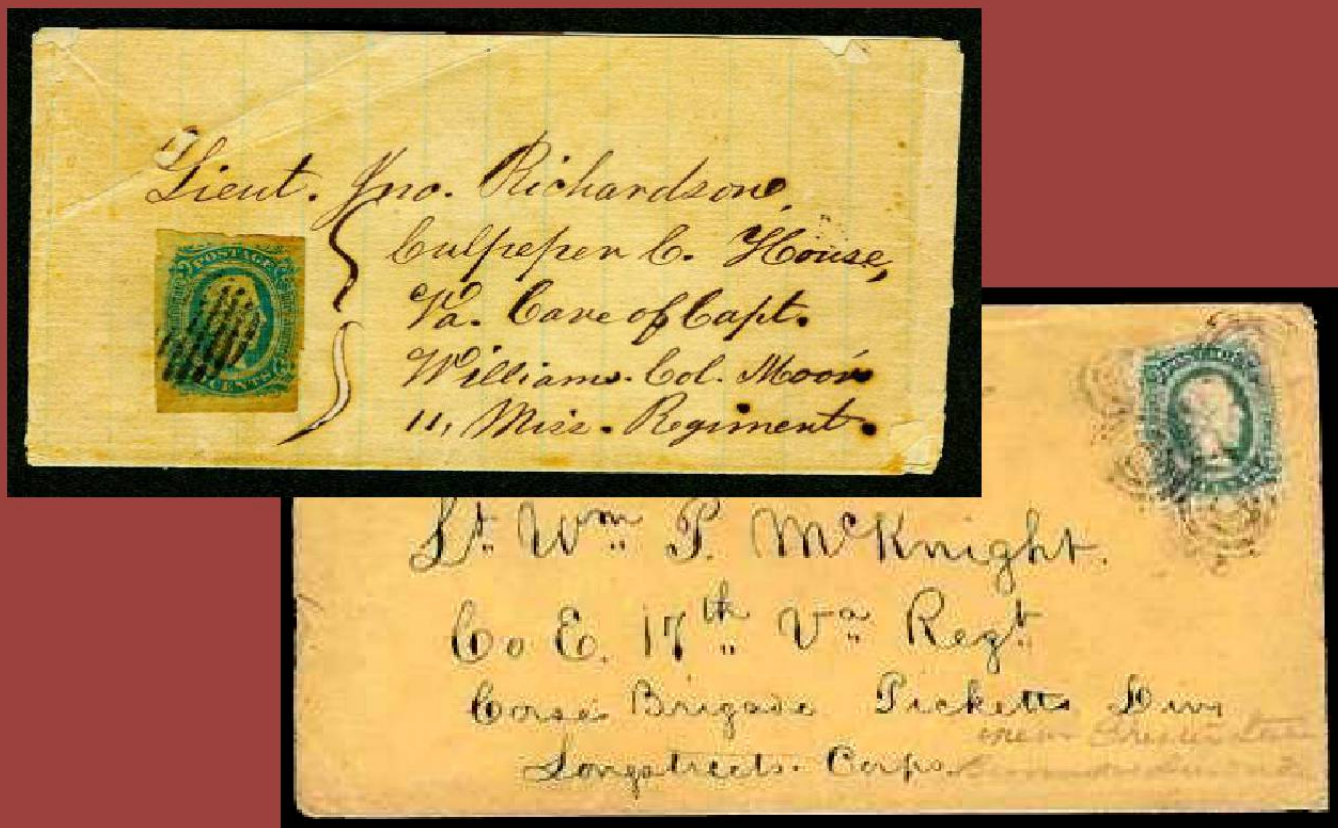 Lieut. Jno. Richardson,
Culpeper C. House,
Va. Care of Capt.
Williams. Col. Moor
11, Miss. Regiment.
POSTAGE
CENTS
Lt. Wm. P. McKnight.
Co E. 17th Va Regt
Corse Brigade Picketts Divn
Longstreets Corps.
near